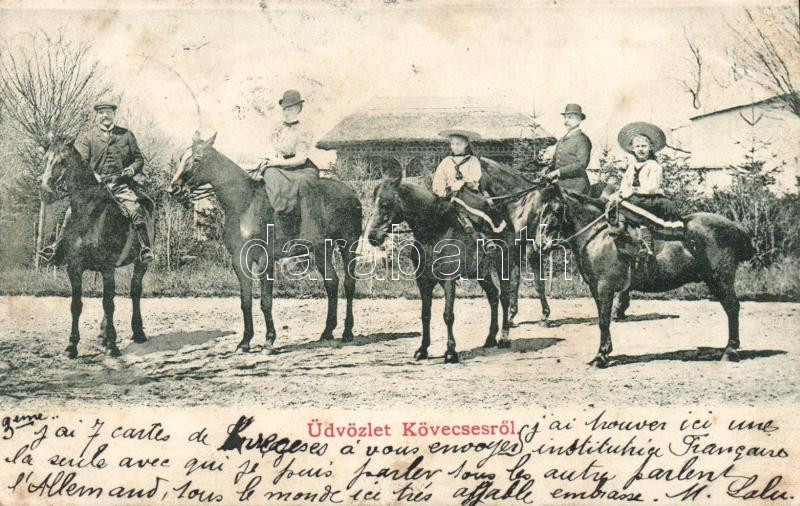 darabanth.com
Üdvözlet Kövecsesről.
3eme .. J'ai 7 cartes de Kövecses à vous envoyer, j'ai trouver ici une institutrice Française
la seule avec qui je puis parler tous les autre parlent
l'Allemand, tous le monde ici très affable embrasse. M. Lalu.